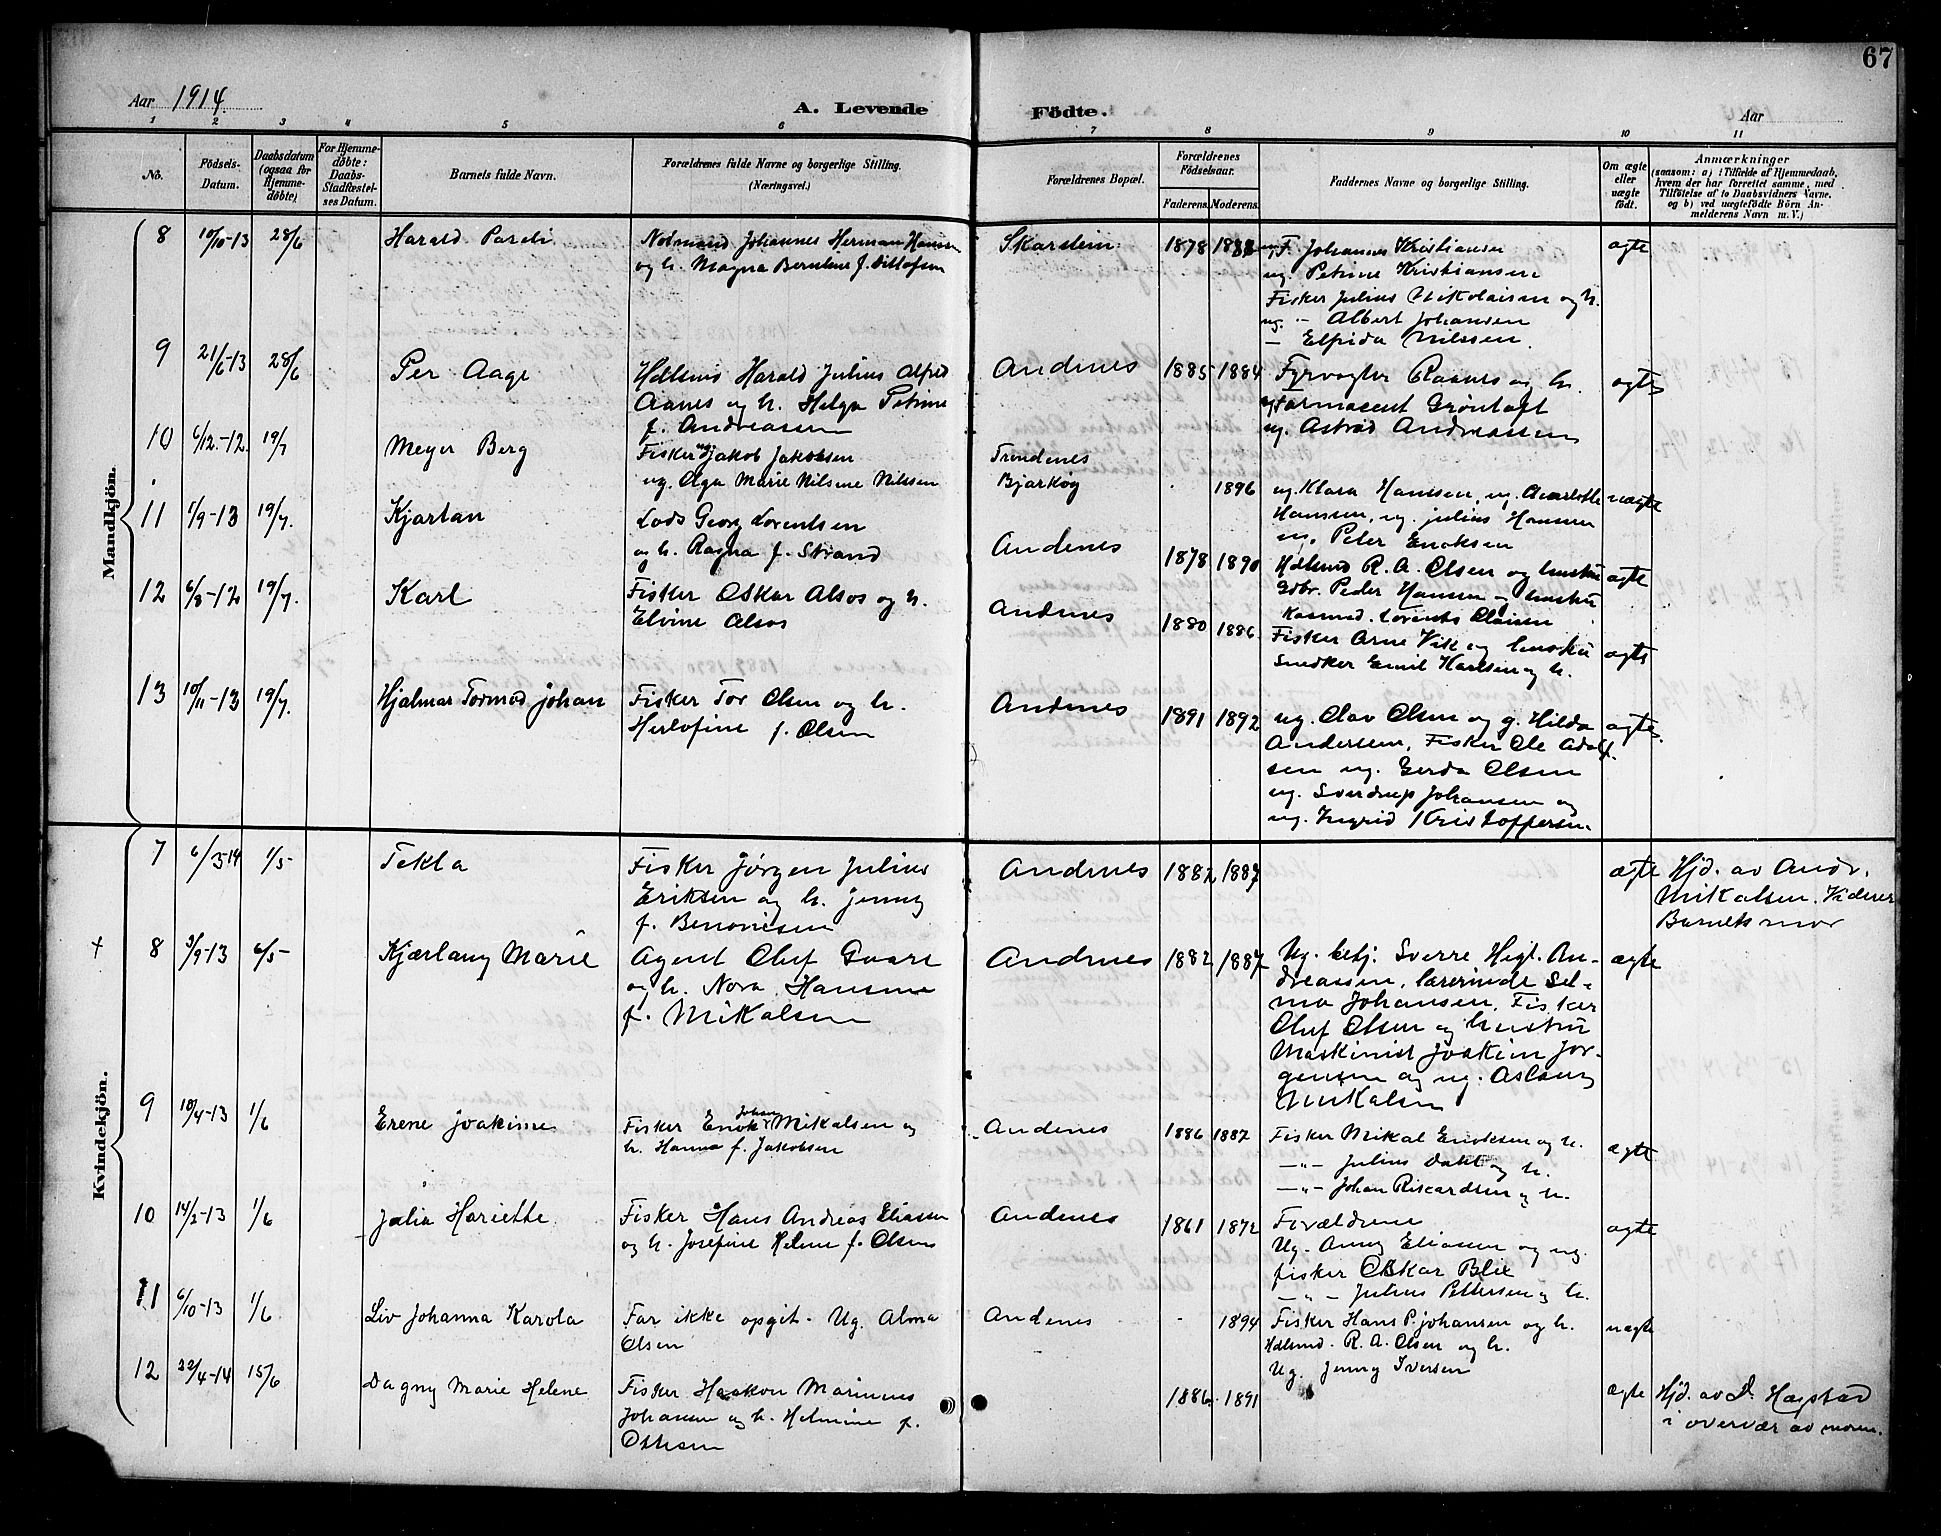 67
Aar 1914.
A. Levende
Födte.
Aar
1 2 3 4 5 6 7 8 9 10 11
No.
Födsels-Datum.
Daabsdatum (ogsaa for Hjemme-döbte)
For Hjemme-döbte: Daabs-Stadfæstel-ses Datum.
Barnets fulde Navn.
Forældrenes fulde Navne og borgerlige Stilling. (Næringsvei.)
Forældrenes Bopæl.
Forældrenes Födselsaar.
Faderens. Moderens.
Faddernes Navne og borgerlige Stilling.
Om ægte eller uægte födt.
Anmærkninger
(saasom: a) i Tilfælde af Hjemmedaab, hvem der har forrettet samme, med Tilföielse af to Daabsvidners Navne, og b) ved uægtefödte Börn An-melderens Navn m. V.)
Mandkjön.
8 10/10-13 28/6 Harald Pareli
Notmand Johannes Herman Hansen
og h. Magna Berntine f. Ditlofsen
Skarstein 1878
F. Johannes Kristiansen
ug. Petrine Kristiansen
Fisker Julius Nikolaisen og h.
ug. - Albert Johansen
- Elfrida Nilssen.
ægte
9 21/6-13 28/6 Per Aage
Hdlsmd Harald Julius Alfred
Aanes og h. Helga Petrine
f. Andreassen
Andenes 1885 1884
Fyrvogter Raanes og h.
Farmaceut Grøntoft
ug. Astrid Andreassen
ægte
10 6/12-12 19/7 Meyer Berg
Fisker ug Jakob Jakobsen
ug. Aga Marie Nilsine Nilssen
Trondenes
Bjarkøy
1896
ug. Klara Hanssen, ug. Charlotte
Hanssen, ug. Julius Hanssen
ug. Peter Enoksen
uægte
11 1/9-13 19/7 Kjartan
Lods Georg Lorentsen
og h. Ragna f. Strand
Andenes 1878 1890
Hdlsmd R. A. Olsen og hustru
Gdbr. Peder Hansen og hustru
Lorents Olaisen
ægte
12 6/8-12 19/7 Karl
Fisker Oskar Alsos og h.
Elvine Alsos
Andenes 1880 1886
Fisker Arne Vik og hustru
Snedker Emil Karlsen og h.
ægte
13 10/11-13 19/7 Hjalmar Tormod Johan
Fisker Tor Olsen og h.
Herlofine f. Olsen
Andenes 1891 1892
ug. Olav Olsen og g. Hilda
Andersen, Fisker Ole Adolf-
sen ug. Gerda Olsen
ug. Sverdrup Johansen og
ug. Ingrid Kristoffersen.
ægte
Kvindekjön.
7 6/3-14 1/5 Tekla
Fisker Jørgen Julius
Eriksen og h. Jenny
f. Benonisen
Andenes 1882 1887
ægte
Hjd. av Andr.
Mikalsen. Vidner
Barnets mor
+ 8 3/9-13 6/5 Kjærlaug Marie
Agent Oluf Guare
og h. Nora Hansine
f. Mikalsen
Andenes 1882 1887
Ug. betj. Sverre Hegl. An-
dreassen, lærerinde Sel-
ma Johansen, Fisker
Oluf Olsen og hustru
Maskinist Joakim Jør-
gensen og ug. Aslaug
Mikalsen
ægte
9 10/4-13 1/6 Erene Joakime
Fisker Enok Johan Mikalsen og
h. Hanna f. Jakobsen
Andenes 1886 1887
Fisker Mikal Enoksen og h.
-"- Julius Dahl og h.
-"- Johan Rikardsen og h.
ægte
10 14/2-13 1/6 Julia Hariette
Fisker Hans Andreas Eliassen
og h. Josefine Helene f. Olsen
Andenes 1861 1872
Forældrene
Ug. Anny Eliassen og ug.
fisker Oskar Blix
-"- Julius Pettersen og h.
ægte
11 6/10-13 1/6 Liv Johanna Karola
Far ikke opgit. Ug. Alma
Olsen
Andenes - 1894
Fisker Hans P. Johansen og h.
Hdlsmd. R. A. Olsen og h.
Ug. Jenny Iversen
uægte
12 22/4-14 15/6 Dagny Marie Helene
Fisker Haakon Marinius
Johansen og h. Helmine f.
Ottesen
1886 1891
ægte
Hjd. av D. Hagstad
i overvær av moren.